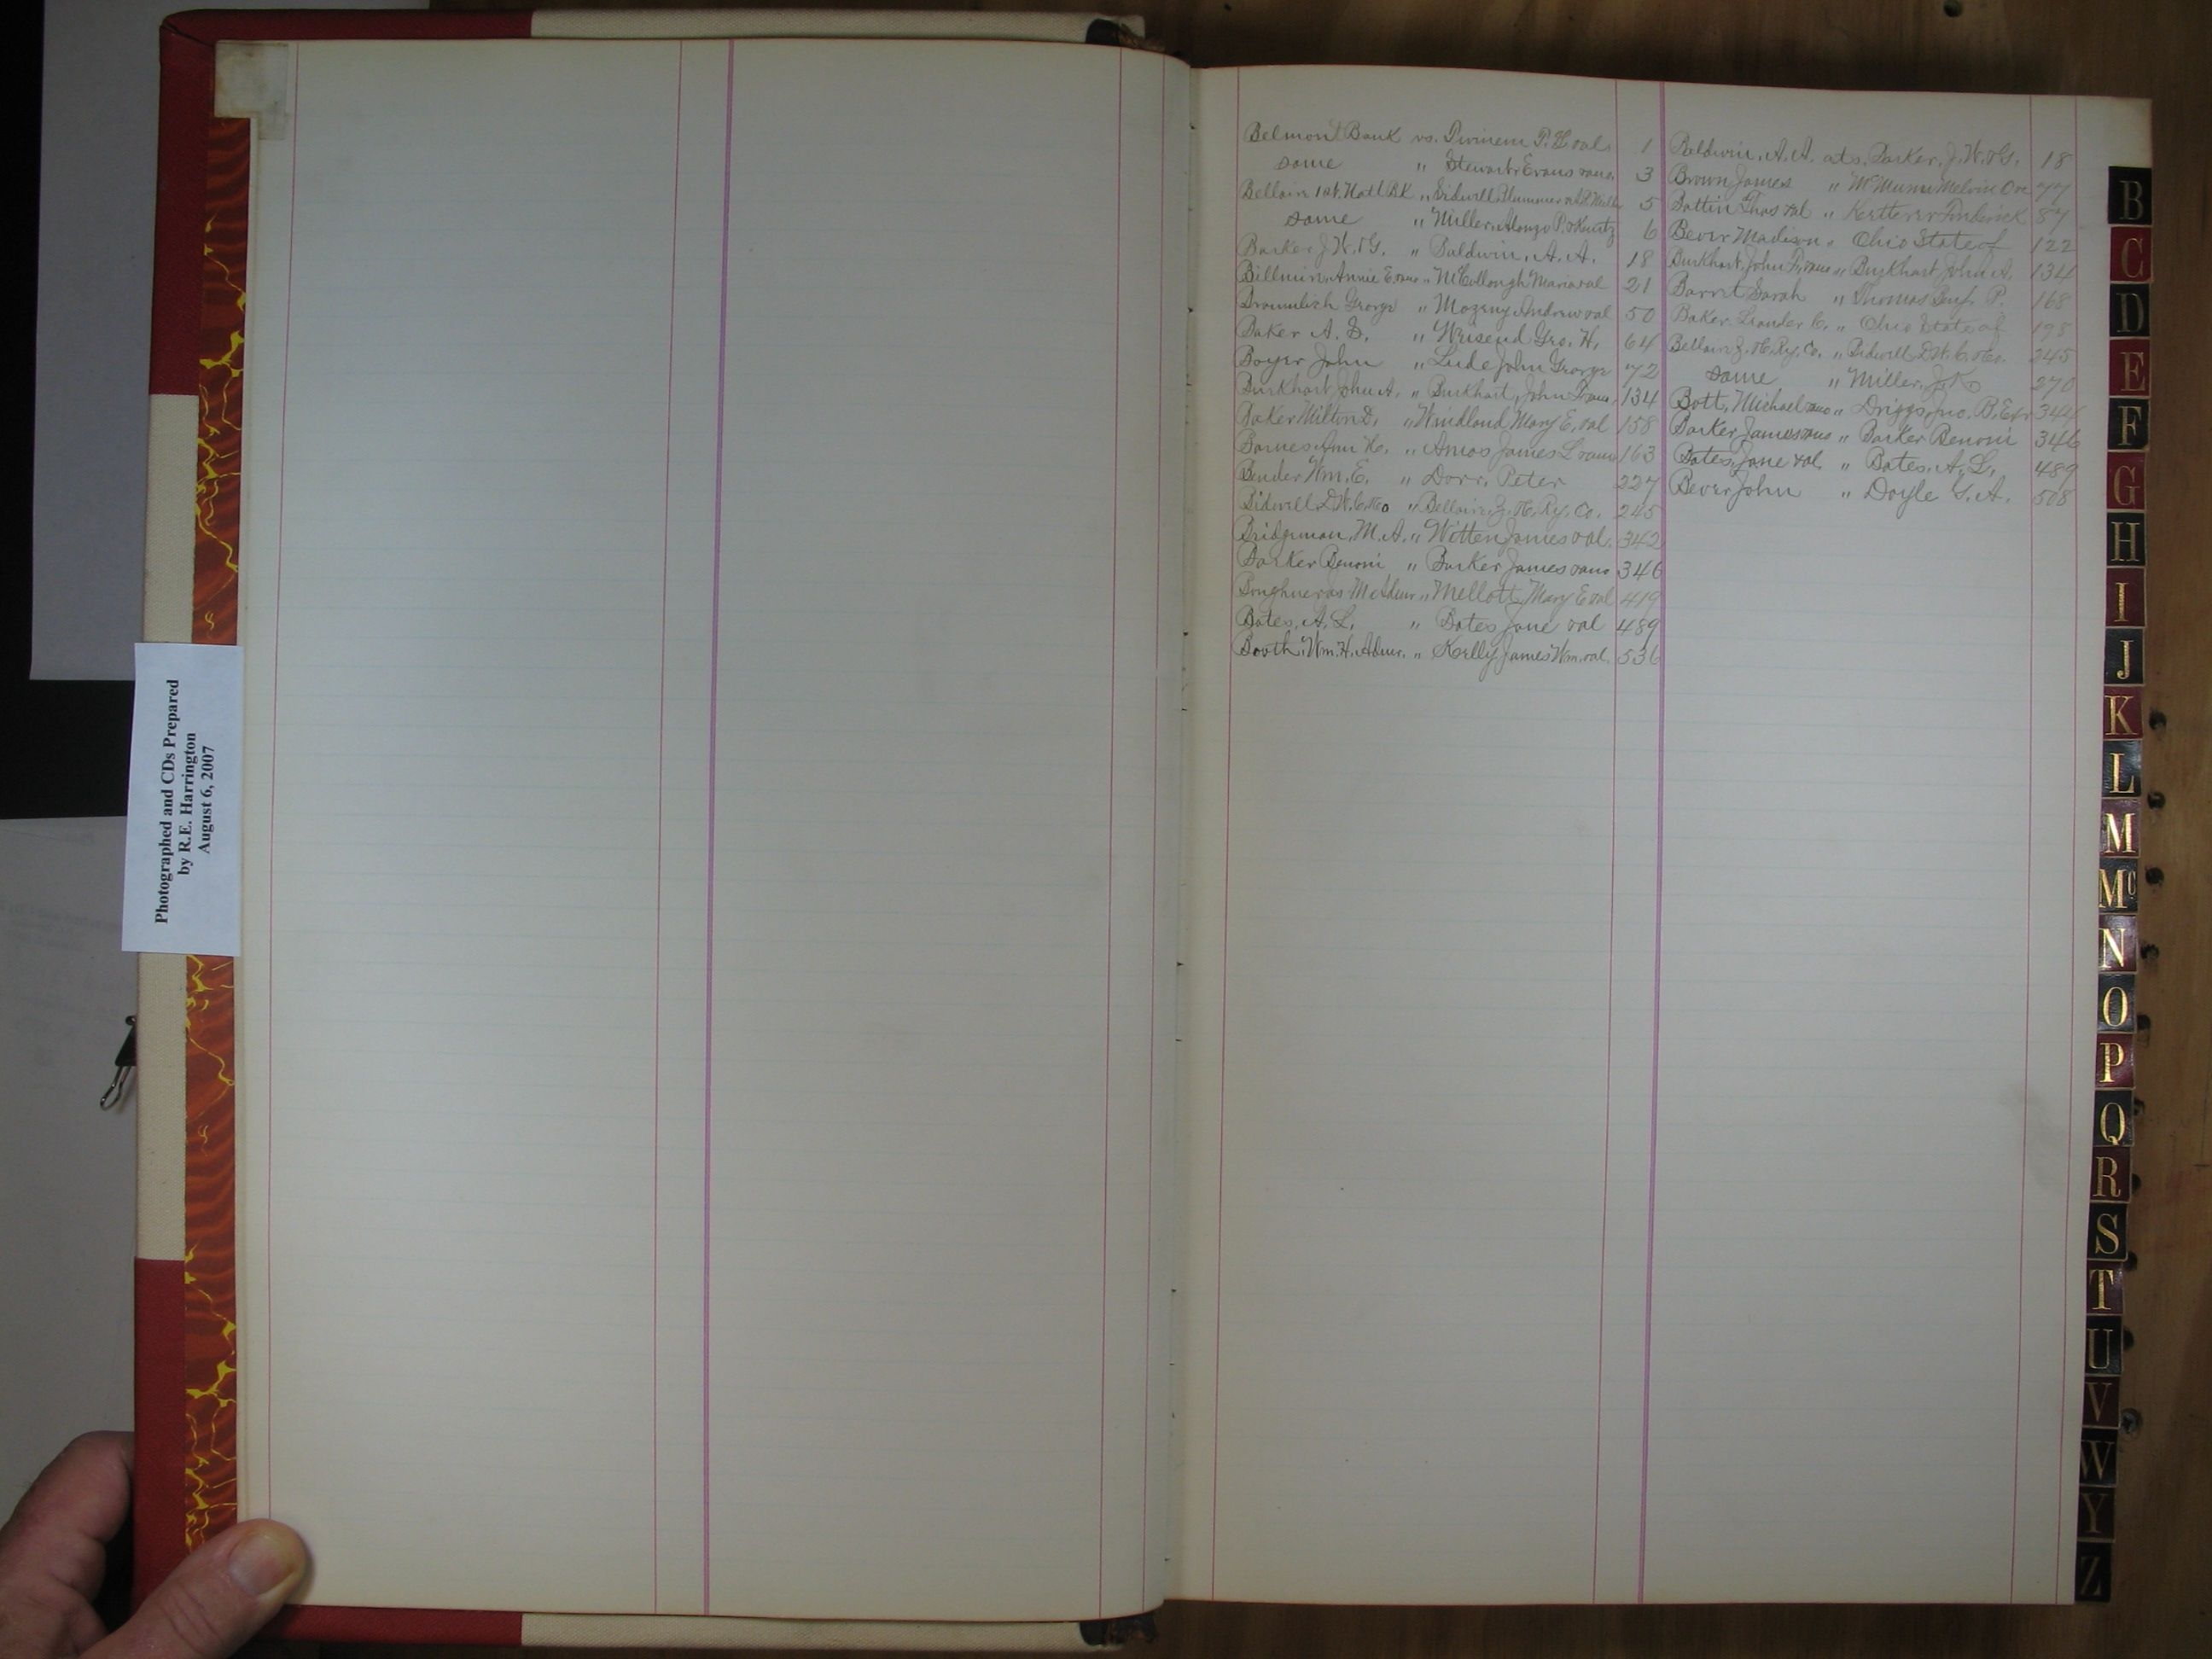 Photographed and CDs Prepared
by R.E. Harrington
August 6, 2007
Belmont Bank vs. T. H et al. 1
same " Stewart Evans 3
Bellaire 1st. Natl Bk. " Sidwell Plummer 5
same " Miller, Alonzo P. & Kurtz 6
Barker J. W. & G. " Baldwin, A. A. 18
Annie E " McCullough Maria et al 21
George " Mozeny Andrew et al 50
Baker A. S. " Geo. H. 64
Boyer John " Lude John George 72
Burkhart John A. " Burkhart, John F 134
Baker Milton D. " Windland Mary E. et al 158
Barnes Ann H. " Amos James L 163
Bender Wm. E. " Dorr, Peter 227
Bidwell D. W. C. & Co " Bellaire Z. & C. Ry. Co. 245
Bridgeman, M. A. " Witten James et al. 342
Barker Benoni " Barker James 346
Admr " Mellott Mary E et al 419
Bates, A. L. " Bates Jane et al 489
Booth, Wm. H. Admr. " Kelly James Wm. et al. 536
Baldwin, A. A. ats. Barker, J. W. & G. 18
Brown James " Melvin 77
Battin Thos et al " Ketterer Frederick 87
Bever Madison " Ohio State of 122
Burkhart, John F. " Burkhart John A. 134
Sarah " Thomas Benj. P. 168
Baker Leander C. " Ohio State of 195
Bellaire Z. & C. Ry. Co. " Bidwell D. W. C. & Co. 245
same " Miller, J. K. 270
Bott, Michael " Driggs, Jno. B. Exr 344
Barker James " Barker Benoni 346
Bates, Jane et al. " Bates, A. L. 489
Bever John " Doyle G. A. 508
B
C
D
E
F
G
H
I
J
K
L
M
Mc
N
O
P
Q
R
S
T
U
V
W
Y
Z